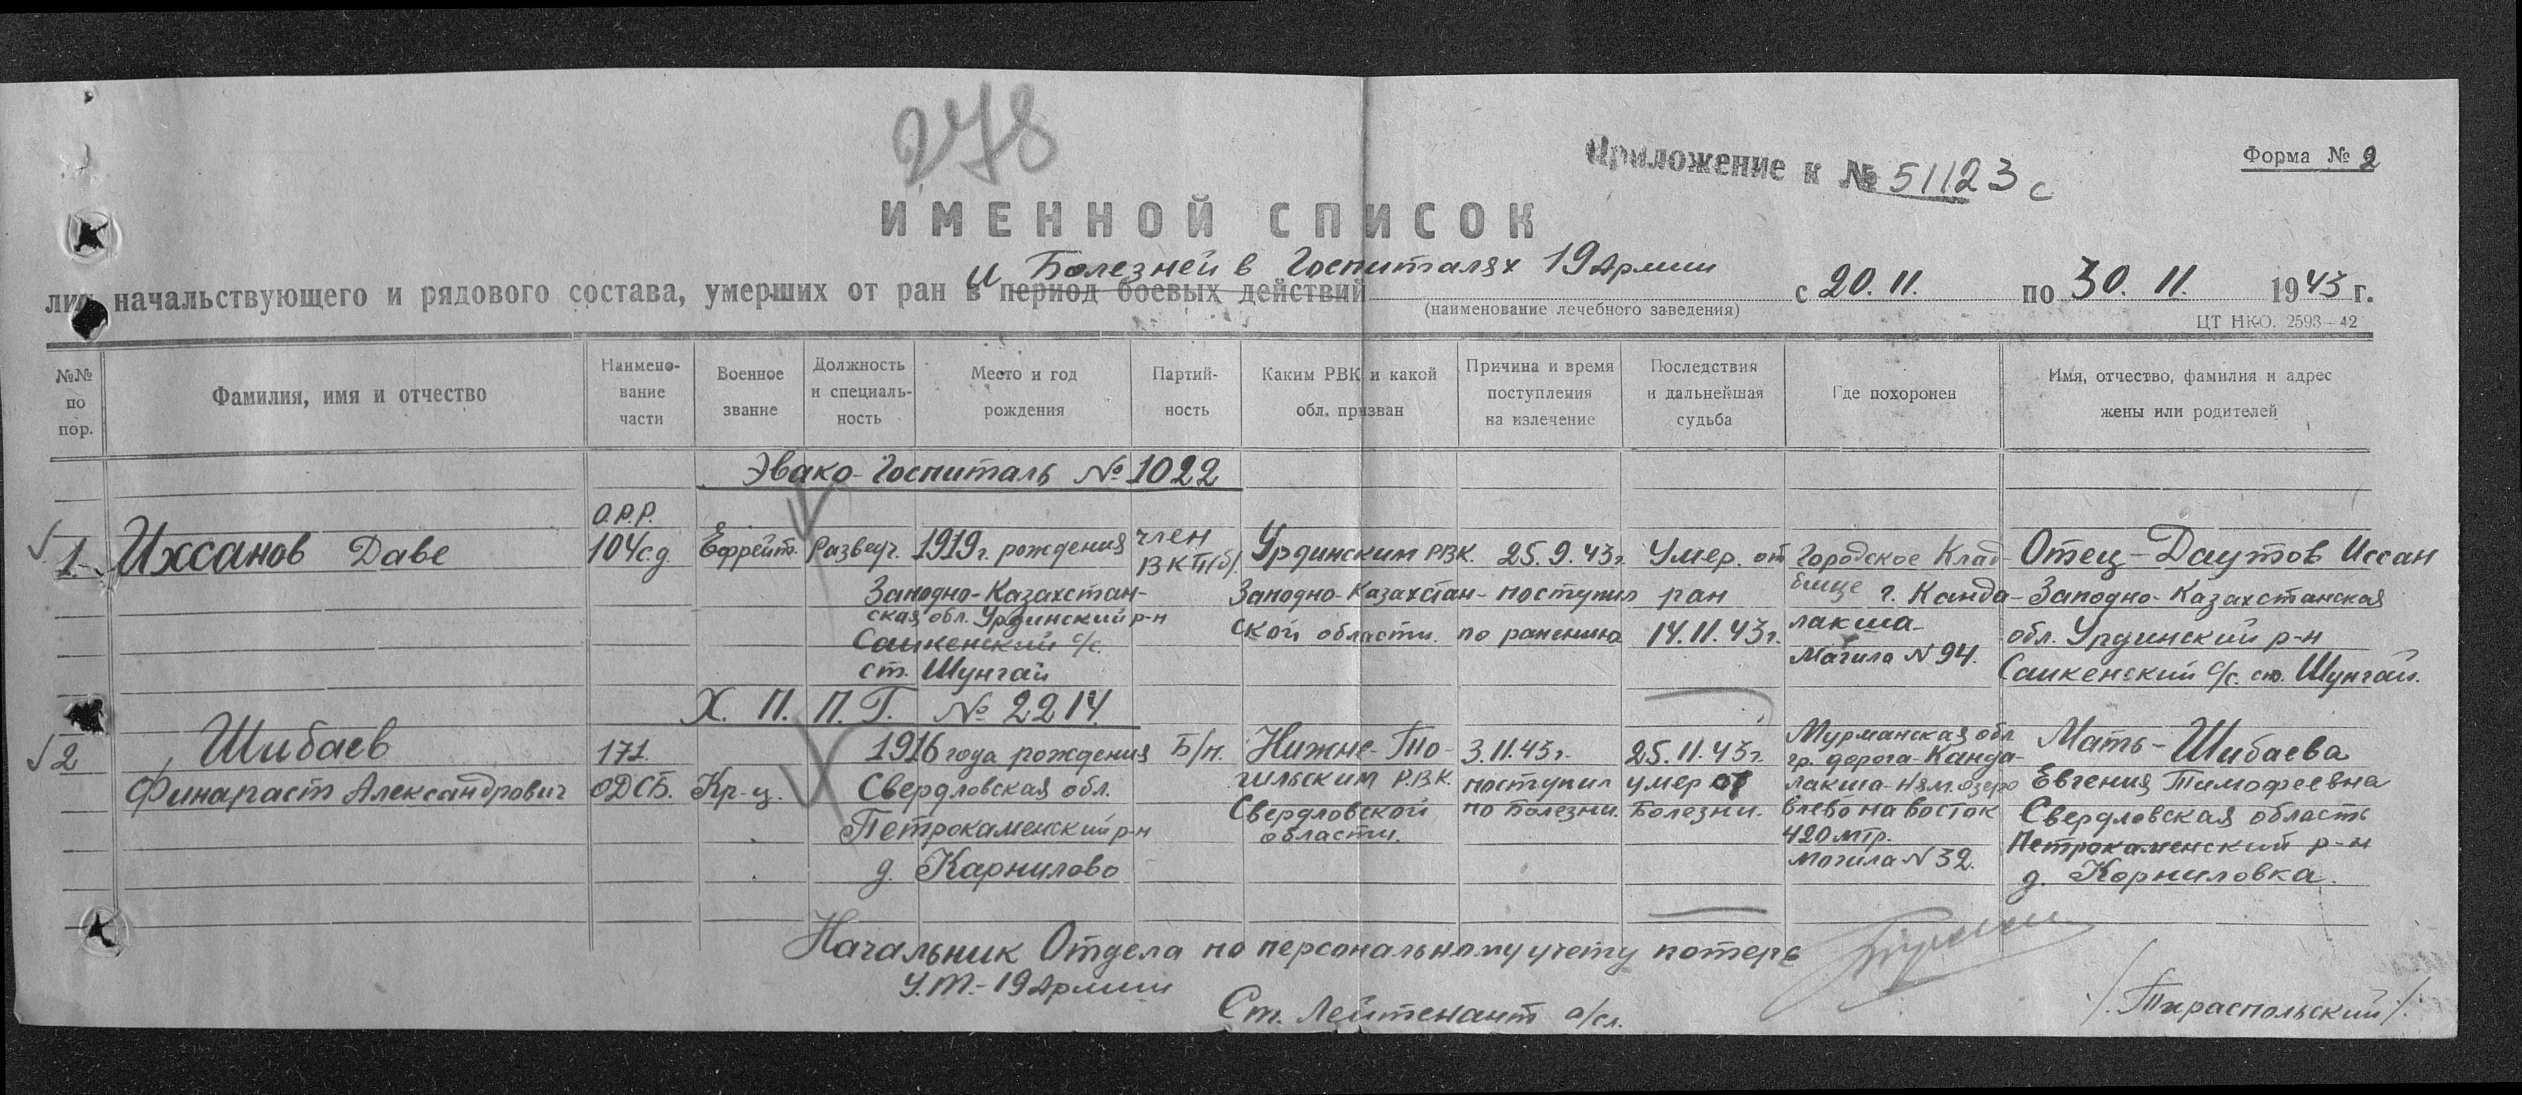 278
Приложение к № 51123 с
Форма № 2
ИМЕННОЙ СПИСОК
и Болезней в Госпиталях 19 Армии
лиц начальствующего и рядового состава, умерших от ран в период боевых действий с 20.11. по 30.11. 1943 г.
(наименование лечебного заведения)
ЦТ НКО. 2593—42
№№ по пор.
Фамилия, имя и отчество
Наимено-
вание
части
Военное
звание
Должность
и специаль-
ность
Место и год
рождения
Партий-
ность
Каким РВК и какой
обл. призван
Причина и время
поступления
на излечение
Последствия
и дальнейшая
судьба
Где похоронен
Имя, отчество, фамилия и адрес
жены или родителей
Эвако-Госпиталь № 1022
1.
Ихсанов Даве
О.Р.Р.
104 с.д.
Ефрейт.
Разведч.
1919 г. рождения
Западно-Казахстан-
ская обл. Урдинский р-н
Саикенский с/с.
ст. Шунгай
член
ВКП(б).
Урдинским РВК.
Западно-Казахстан-
ской области.
25.9.43г.
поступил
по ранению
Умер. от
ран
14.11.43г.
Городское Клад-
бище г. Канда-
лакша-
Могила N 94.
Отец-Даутов Иссан
Западно-Казахстанская
обл. Урдинский р-н
Саикенский с/с. ст. Шунгай.
Х. П. П. Г. № 2214
2
Шибаев
Финараст Александрович
171.
ОДСБ.
Кр-ц.
1916 года рождения
Свердловская обл.
Петрокаменский р-н
д. Карнилово
Б/п.
Нижне-Та-
гильским Р.В.К.
Свердловской
области.
3.11.43г.
поступил
по Болезни.
25.11.43г.
умер от
Болезни.
Мурманская обл
гр. дорога-Канда-
лакша-Ням.озеро
влево на восток
420 мтр.
Могила N 32.
Мать-Шибаева
Евгения Тимофеевна
Свердловская область
Петрокаменский р-н
д. Корниловка.
Начальник Отдела по персональному учету потерь
У.Т.-19 Армии
Ст. Лейтенант а/сл.
/.Тираспольский/.